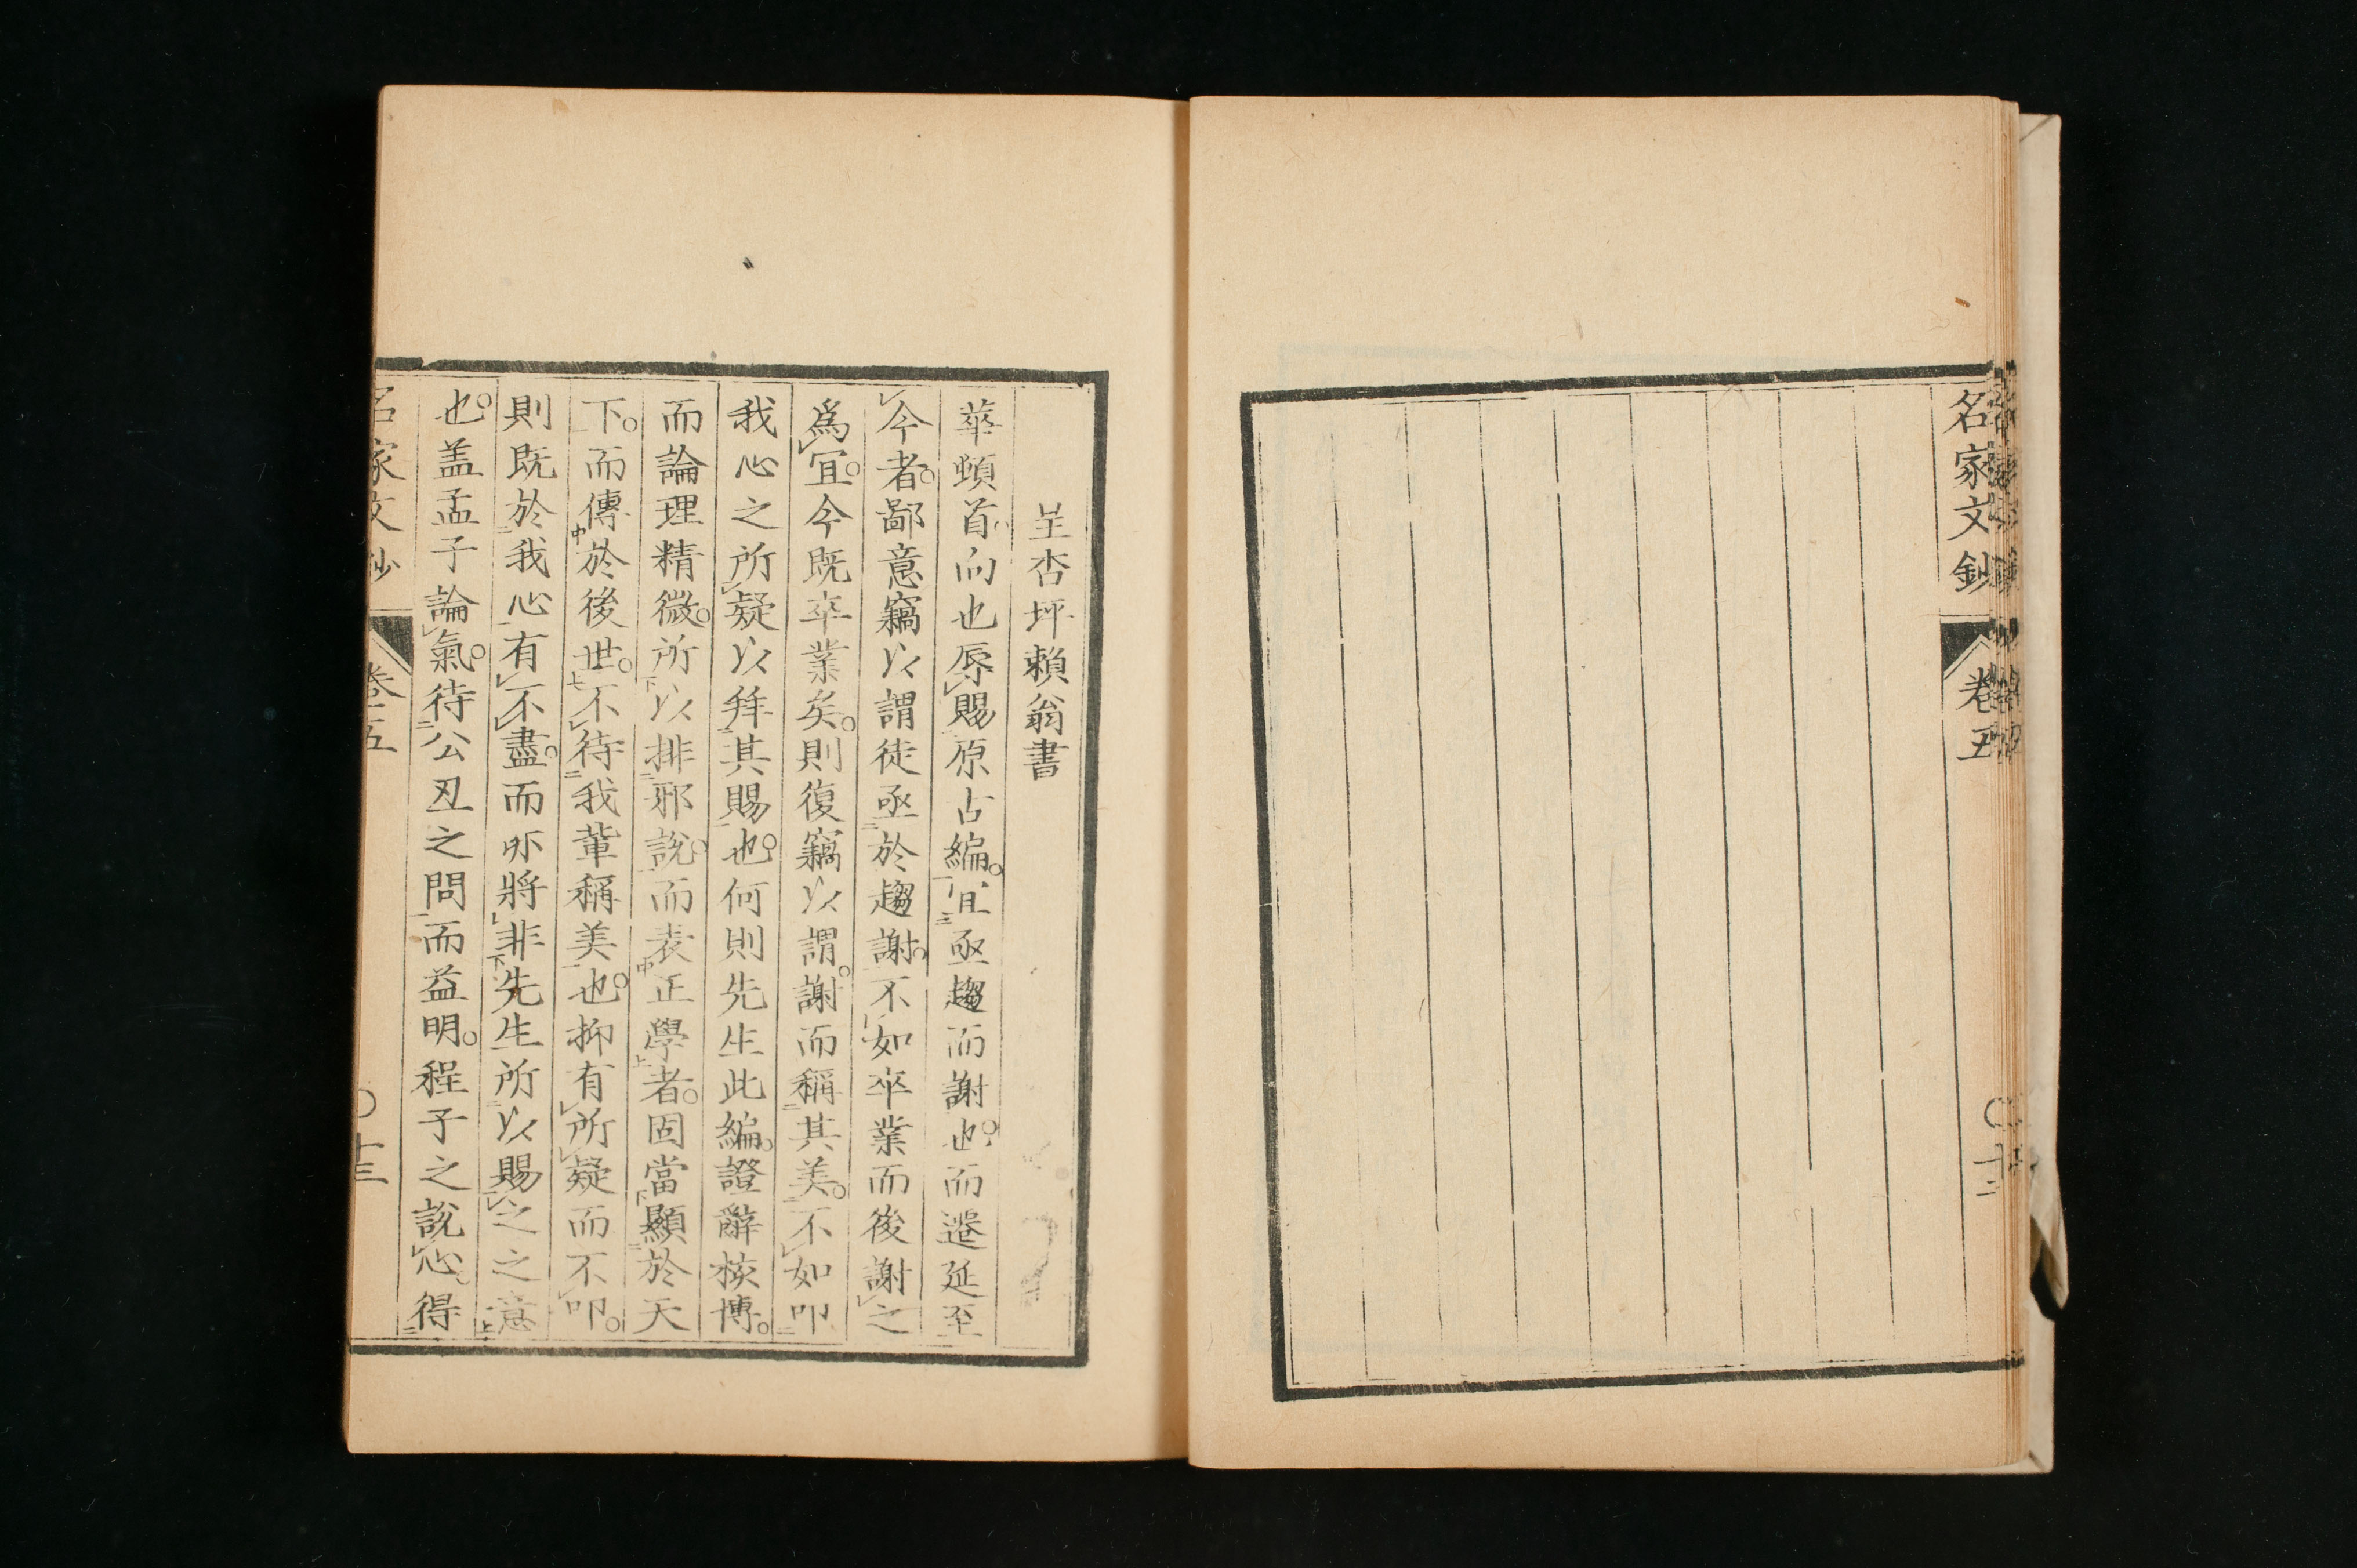 名家文鈔 卷五 〇十二
呈杏坪賴翁書
華頓首向也辱賜原古編宜亟趨而謝也而遷延至
今者鄙意竊以謂徒亟於趨謝不如卒業而後謝之
爲宜今既卒業矣則復竊以謂謝而稱其美不如叩
我心之所疑以拜其賜也何則先生此編證辭核博
而論理精微所以排邪說而表正學者固當顯於天
下而傳於後世不待我輩稱美也抑有所疑而不叩
則既於我心有不盡而亦將非先生所以賜之之意
也蓋孟子論氣待公丑之問而益明程子之說心得
名家文鈔 卷五 〇十三